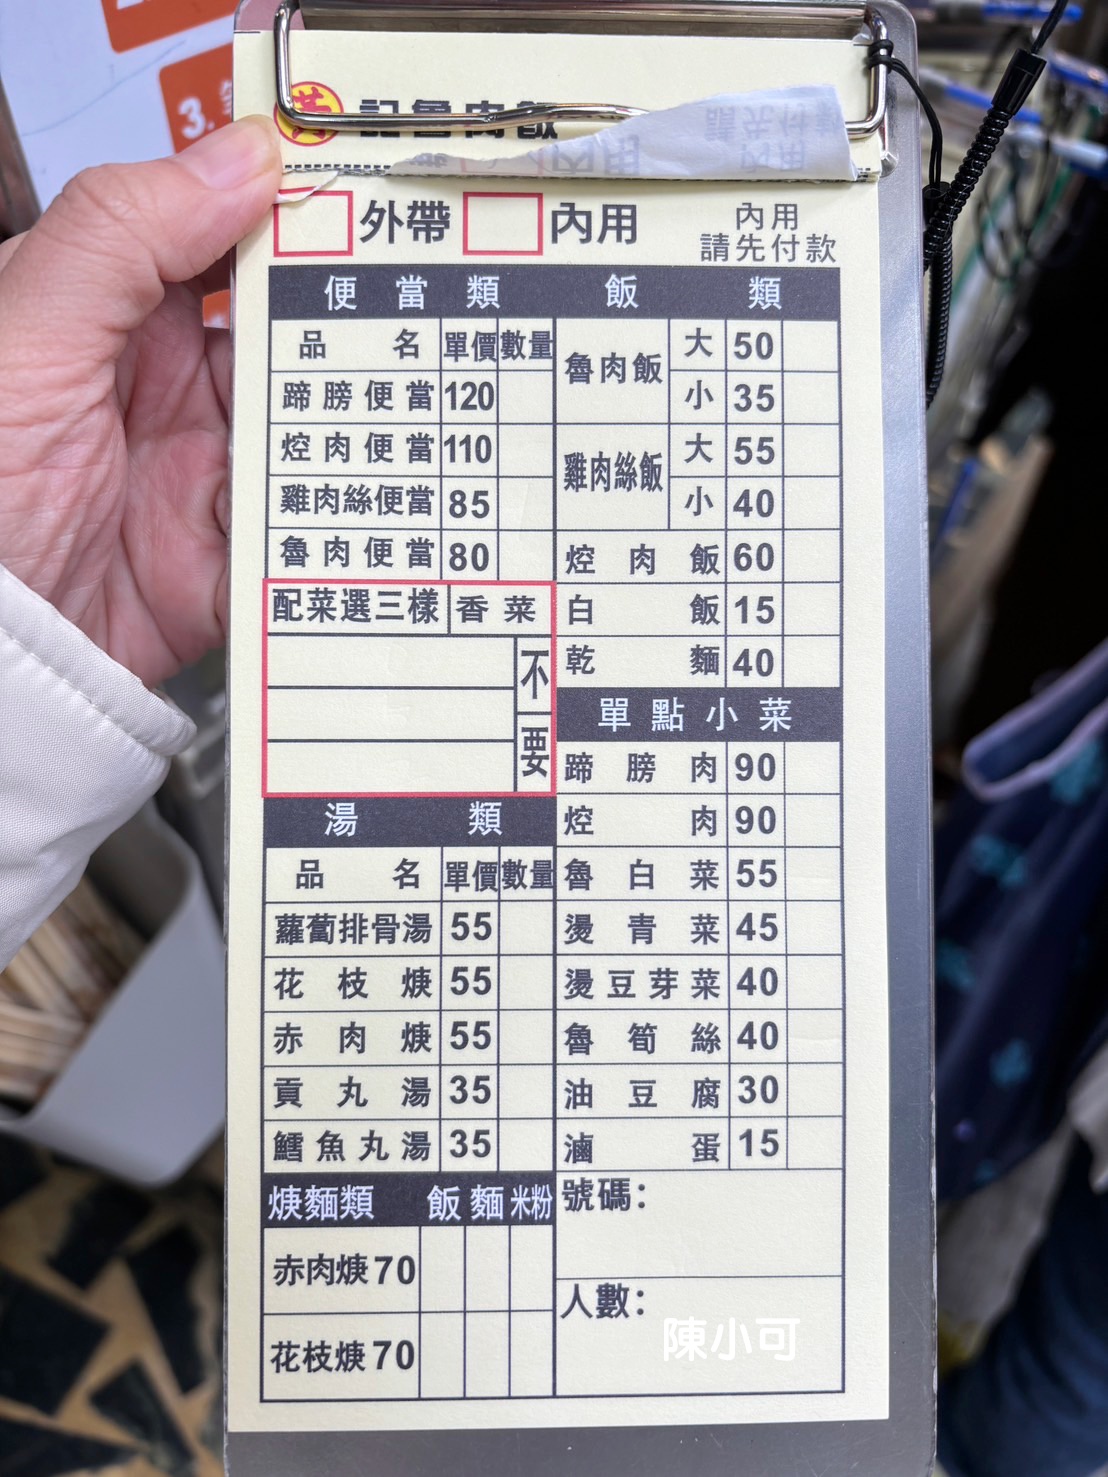 3.
黃記魯肉飯
外帶 內用
內用
請先付款
便當類
品名 單價 數量
蹄膀便當 120
焢肉便當 110
雞肉絲便當 85
魯肉便當 80
配菜選三樣 香菜
不要
湯類
品名 單價 數量
蘿蔔排骨湯 55
花枝焿 55
赤肉焿 55
貢丸湯 35
鱈魚丸湯 35
焿麵類 飯 麵 米粉
赤肉焿 70
花枝焿 70
飯類
魯肉飯 大 50
小 35
雞肉絲飯 大 55
小 40
焢肉飯 60
白飯 15
乾麵 40
單點小菜
蹄膀肉 90
焢肉 90
魯白菜 55
燙青菜 45
燙豆芽菜 40
魯筍絲 40
油豆腐 30
滷蛋 15
號碼：
人數：
陳小可